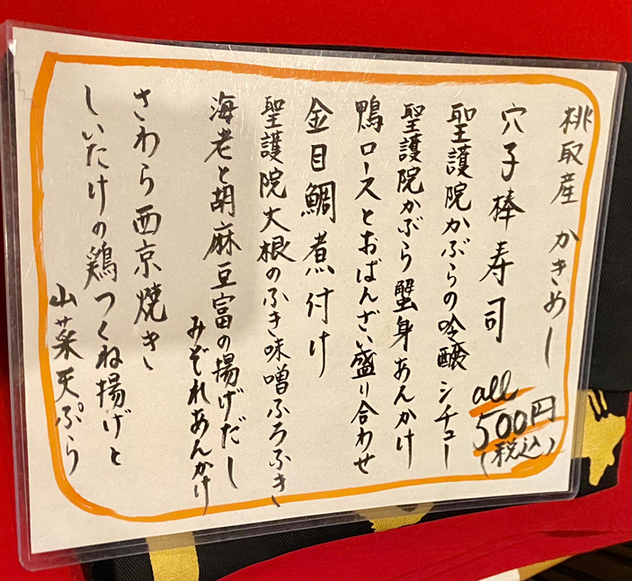 桃取産 かきめし
穴子棒寿司
all
500円
(税込)
聖護院かぶらの吟醸シチュー
聖護院かぶら蟹身あんかけ
鴨ロースとおばんざい盛り合わせ
金目鯛煮付け
聖護院大根のふき味噌ふろふき
海老と胡麻豆富の揚げだし
みぞれあんかけ
さわら西京焼き
しいたけの鶏つくね揚げと
山菜天ぷら